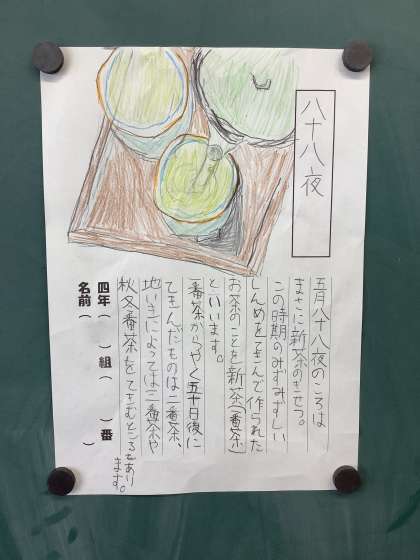 八十八夜
五月八十八夜のころは
まさに新茶のきせつ。
この時期のみずみずしい
しんめをてきんで作られた
お茶のことを新茶(一番茶)
といいます。
一番茶からやく五十日後に
てきんだものは二番茶、
地いきによっては三番茶や
秋冬番茶をてきむところもあり
ます。
四年( )組( )番
名前( )